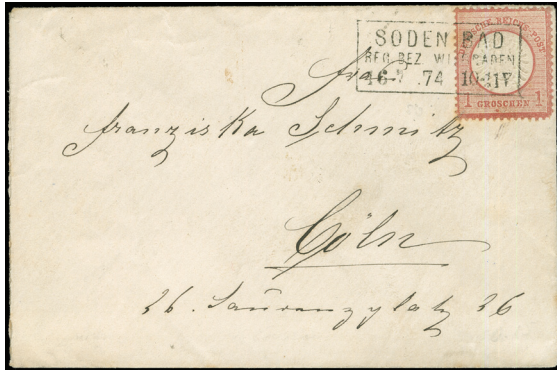 SODEN BAD
REG. BEZ. WIESBADEN
16 74 10-11V
DEUTSCHE REICHS-POST
1 GROSCHEN 1
Frau
Franziska Schmitz
Cöln
26. Laurenzplatz 26